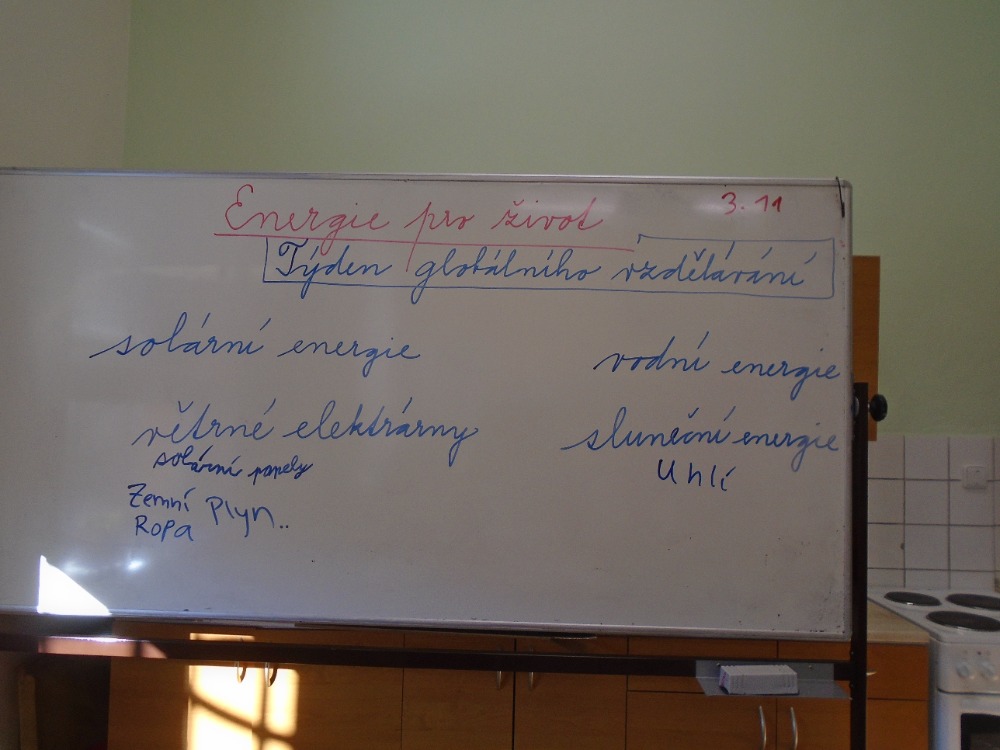 Energie pro život 3.11
Týden globálního vzdělávání
solární energie
vodní energie
větrné elektrárny
sluneční energie
solární panely
Uhlí
Zemní Plyn..
Ropa